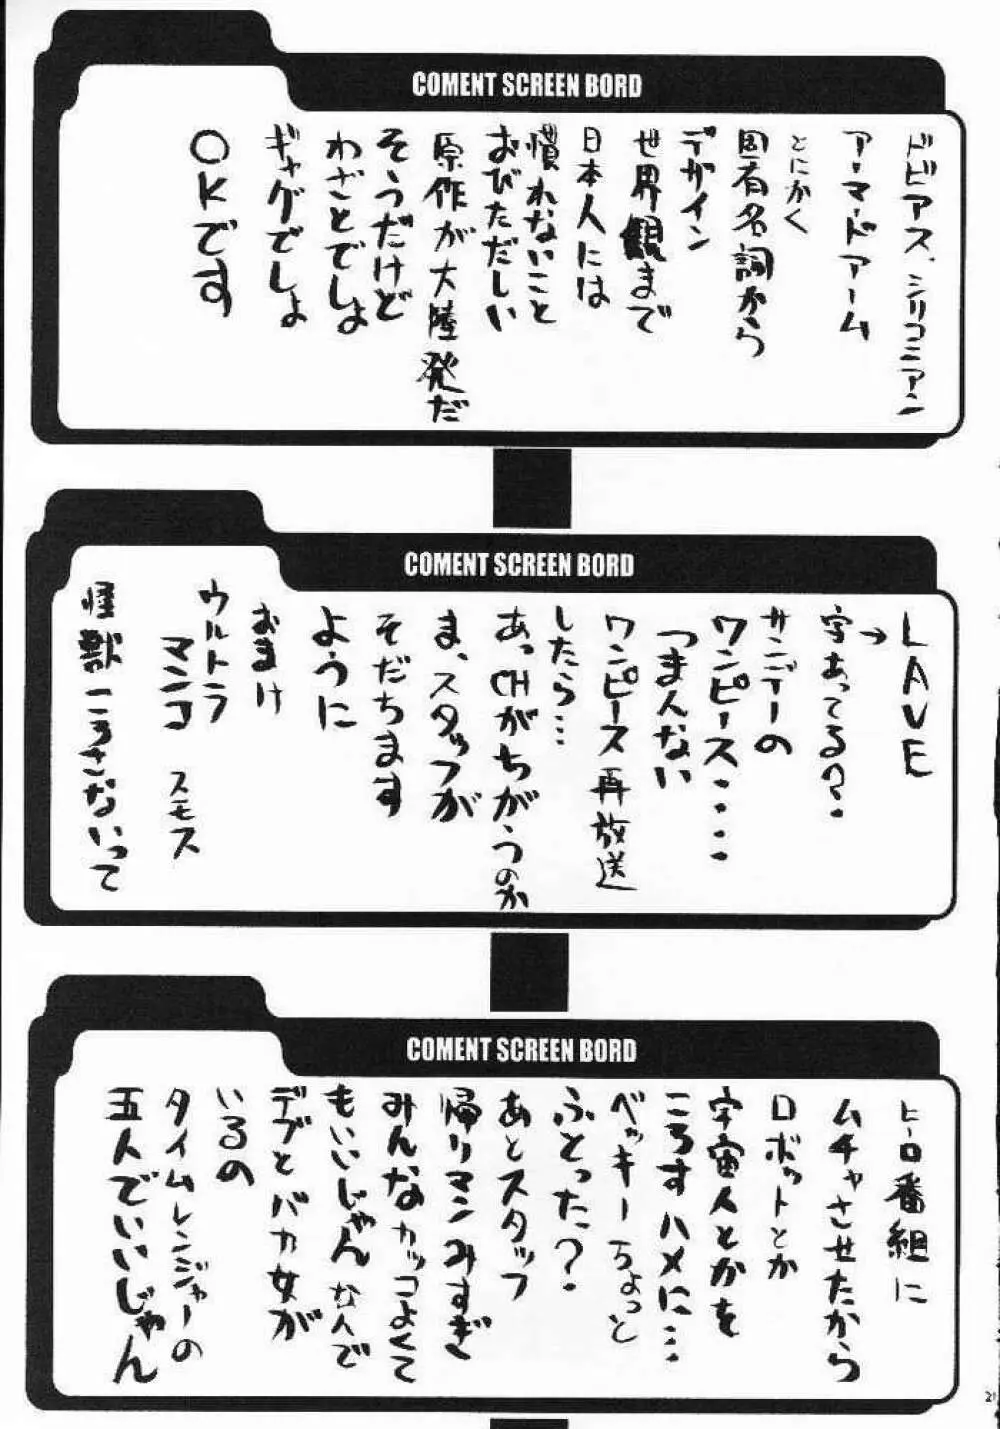 COMENT SCREEN BORD
ドビアス、シリコニアン
アーマードアーム
とにかく
固有名詞から
デザイン
世界観まで
日本人には
慣れないこと
おびただしい
原作が大陸発だ
そうだけど
わざとでしょ
ギャグでしょ
OKです
COMENT SCREEN BORD
LAVE
→
字あってる?
サンデーの
ワンピース・・・・
つまんない
ワンピース再放送
したら…
あっCHがちがうのか
ま、スタッフが
そだちます
ように
おまけ
ウルトラ
マンコ スモス
怪獣ころさないって
COMENT SCREEN BORD
ヒーロ番組に
ムチャさせたから
ロボットとか
宇宙人とかを
ころすハメに…
ベッキーちょっと
ふとった?
あとスタッフ
帰りマンみすぎ
みんなカッコよくて
もいいじゃん なんで
デブとバカ女が
いるの
タイムレンジャーの
五人でいいじゃん
21